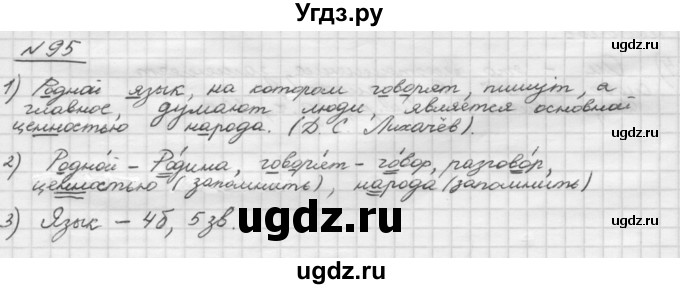 Угдз.ру
№95
1) Родной язык, на котором говорят, пишут, а
главное, думают люди, является основной
ценностью народа. (Д С Лихачёв).
2) Родной - Родима, говорят - говор, разговор,
ценностью (запомнить), народа (запомнить)
3) Язык - 4б, 5 зв.
ugdz.ru
ugdz.ru
ugdz.ru
ugdz.ru
ugdz.ru
ugdz.ru
ugdz.ru